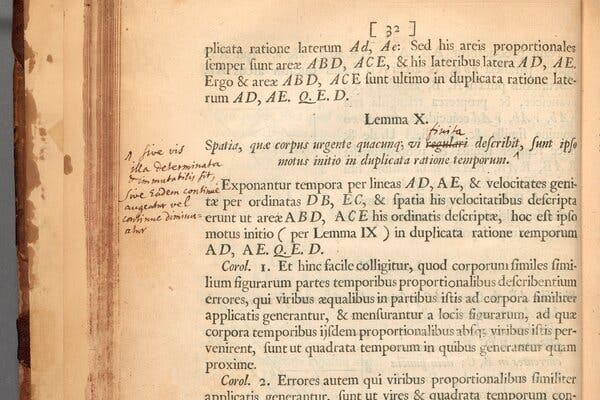 [ 32 ]
plicata ratione laterum Ad, Ae: Sed his areis proportionales
semper sunt areæ ABD, ACE, & his lateribus latera AD, AE.
Ergo & areæ ABD, ACE sunt ultimo in duplicata ratione late-
rum AD, AE. Q. E. D.
Lemma X.
finita
Spatia, quæ corpus urgente quacunq; vi regulari describit, sunt ipso
motus initio in duplicata ratione temporum. ^
Λ. sive vis
illa determinata
& immutabilis sit,
sive eadem continue
augeatur vel
continue diminu=
atur
Exponantur tempora per lineas AD, AE, & velocitates geni-
tæ per ordinatas DB, EC, & spatia his velocitatibus descripta
erunt ut areæ ABD, ACE his ordinatis descriptæ, hoc est ipso
motus initio ( per Lemma IX ) in duplicata ratione temporum
AD, AE. Q. E. D.
Corol. 1. Et hinc facile colligitur, quod corporum similes simi-
lium figurarum partes temporibus proportionalibus describentium
errores, qui viribus æqualibus in partibus istis ad corpora similiter
applicatis generantur, & mensurantur a locis figurarum, ad quæ
corpora temporibus ijsdem proportionalibus absq; viribus istis per-
venirent, sunt ut quadrata temporum in quibus generantur quam
proxime.
Corol. 2. Errores autem qui viribus proportionalibus similiter
applicatis generantur, sunt ut vires & quadrata temporum con-